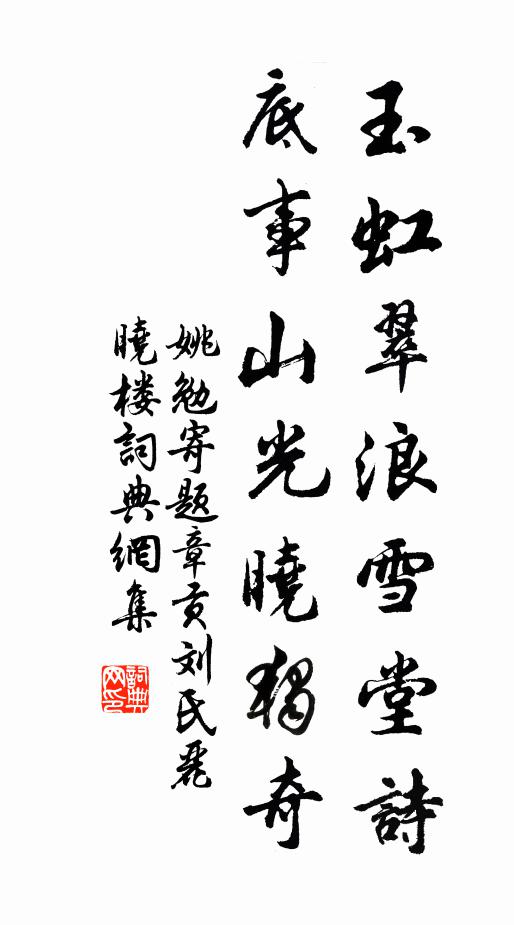 玉虹翠浪雪堂詩
底事山光曉獨奇
姚勉寄題章贡刘民麗
曉楼詞典網集
詞典网印